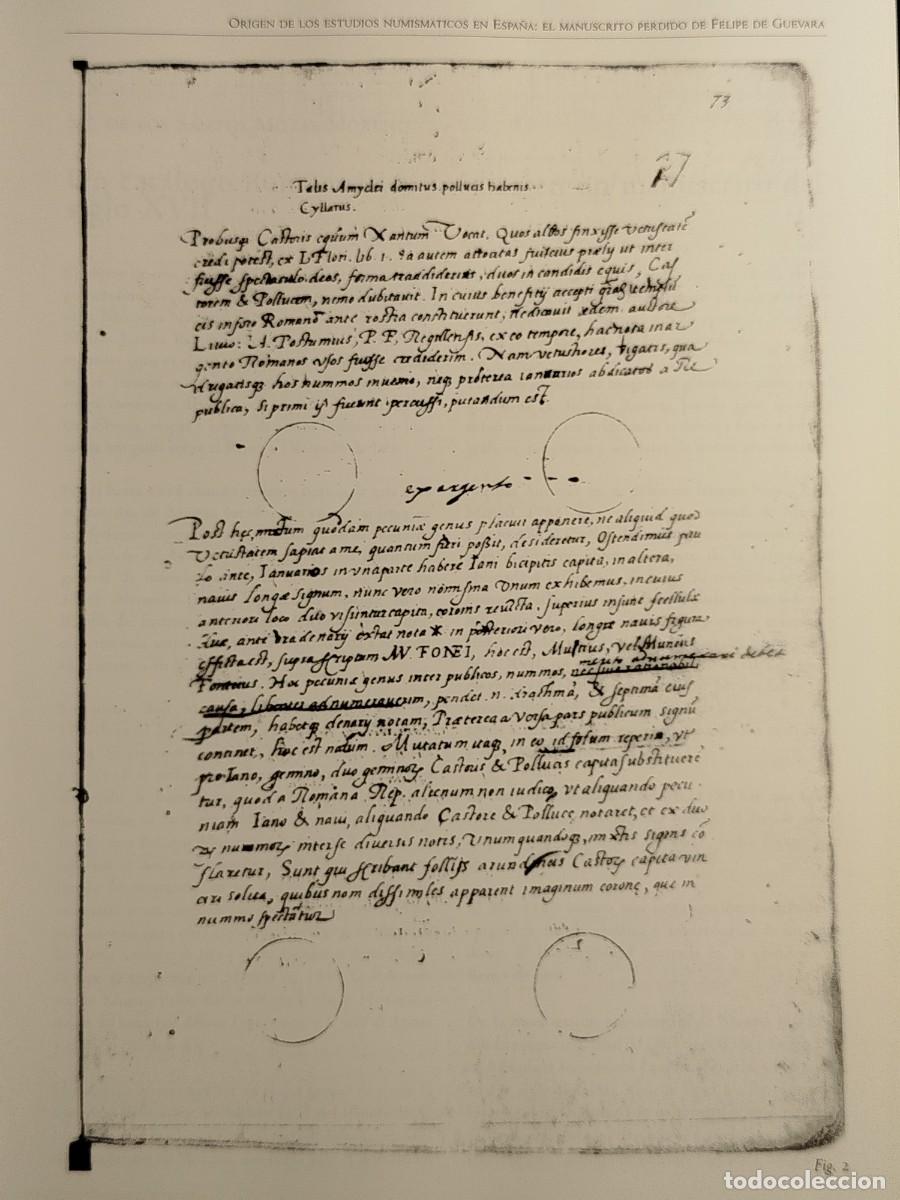 ORIGEN DE LOS ESTUDIOS NUMISMATICOS EN ESPAÑA: EL MANUSCRITO PERDIDO DE FELIPE DE GUEVARA
73
27
Talis Amyclei domitus pollucis habenis
Cyllarus.
Probusq; Castoris equum Xantum Vocat. Quos altos finxisse vetustatē
credi potest, ex L. Flori. lib. 1. autem attoctas prælij ut inter
fuisse spectaculo deos, forma tradiderint, duos in candidis equis, Cas
torem & Pollucem, nemo dubitavit. In cuius benefitij accepti
cis in foro Romanō ante rostra constituerunt, dedicavit ædem. auctore
Livio: A. Postumius, P. F. Regillensis, ex eo tempore, hac nota in ar
gento Romanos usos fuisse crediderim. Nam vetustiores, bigatis, qua
drigatisq; hos nummos invenio, neq; propterea ianuarios abdicatos a Re
publica, si primi ij fuerint percussi, putandum est.
ex argento
Post hęc quodam pecuniæ genus placuit apponere, ne aliquid quod
Vetustatem sapiat a me, quantum fieri poßit, desideretur, Ostendimus pau
lo ante, Ianuarios in una parte habere Iani bicipitis capita, in altera,
navis longæ signum, nunc vero nomisma unum exhibemus, in cuius
anteriori loco duo visuntur capita, coronis revincta. superius insunt stellulæ
duæ, ante ora denarij extat nota * in posteriori vero, longæ navis figura
effecta est, supra scriptam MV. FONEI, hoc est, Mutius, vel Munius
Fonteius. Hoc pecuniæ genus inter publicos, nummos, nec sine rationabili
merito adnumerari debet
causa, libenter adnumeraverim, pendet .n. draghmā, & septimā eius
partem, habetq; denarij notam, Præterea aversa pars publicum signū
continet, hoc est navim. Mutatum itaq; in eo id solum reperio, ut
pro Iano, gemino, duo geminorū Castoris & Pollucis capita substituerē
tur, quod a Romana Rep. alienum non iudico, ut aliquando pecu
niam Iano & navi, aliquando Castore & Polluce notaret, et ex duo
nummorū inter se diversis notis, unum quandoq; mixtis signis cō
flaretur, Sunt qui scribant follijs arundineis Castorū capita vin
ciri solita, quibus non dissimiles apparent imaginum coronę, que in
nummo spectātur
Fig. 2
todocoleccion